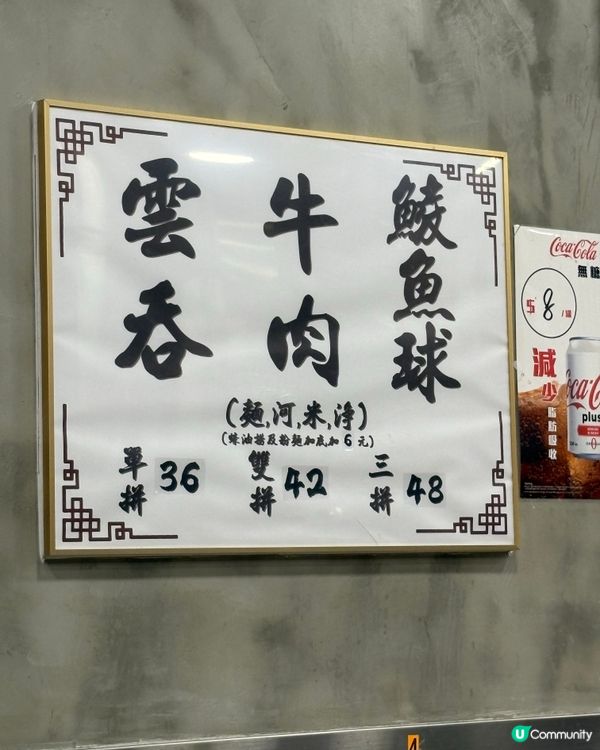 雲吞
牛肉
鯪魚球
(麵,河,米,淨)
(蠔油撈及粉麵加底加6元)
單拼 36
雙拼 42
三拼 48
Coca-Cola
無糖
$8/罐
減少脂肪吸收
Coca-C
plus
4
U Community